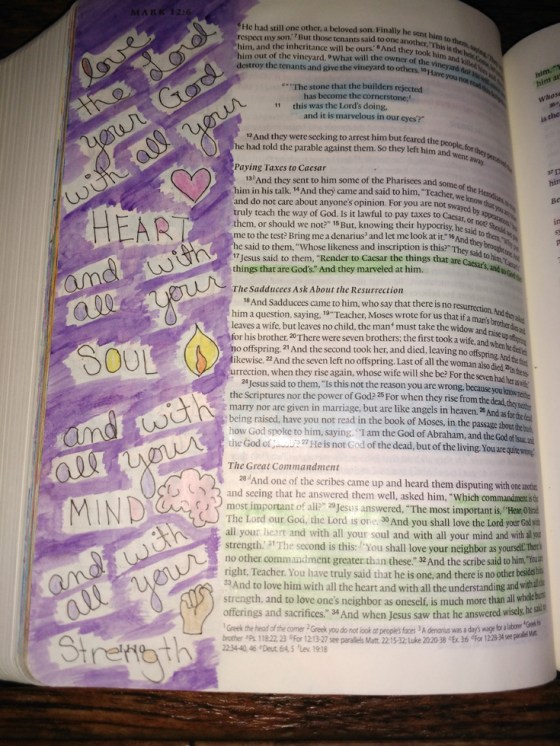 MARK 12:6
love
the Lord
your God
with all your
HEART
and with
all your
SOUL
and with
all your
MIND
and with
all your
Strength
He had still one other, a beloved son. Finally he sent him to them, saying,
respect my son.' 7But those tenants said to one another, 'This is the heir.
him, and the inheritance will be ours.' 8And they took him and killed
him out of the vineyard. 9What will the owner of the vineyard do?
destroy the tenants and give the vineyard to others. 10Have you not
"'The stone that the builders rejected
has become the cornerstone;
11 this was the Lord's doing,
and it is marvelous in our eyes'?"
12And they were seeking to arrest him but feared the people, for they
he had told the parable against them. So they left him and went away.
Paying Taxes to Caesar
13And they sent to him some of the Pharisees and some of the
him in his talk. 14And they came and said to him, "Teacher, we know
and do not care about anyone's opinion. For you are not swayed by
truly teach the way of God. Is it lawful to pay taxes to Caesar, or not?
them, or should we not?" 15But, knowing their hypocrisy, he said to them,
me to the test? Bring me a denarius and let me look at it." 16And they brought
he said to them, "Whose likeness and inscription is this?" They said to him,
17Jesus said to them, "Render to Caesar the things that are Caesar's, and to God
things that are God's." And they marveled at him.
The Sadducees Ask About the Resurrection
18And Sadducees came to him, who say that there is no resurrection. And they asked
him a question, saying, 19"Teacher, Moses wrote for us that if a man's brother dies and
leaves a wife, but leaves no child, the man must take the widow and raise up offspring
for his brother. 20There were seven brothers; the first took a wife, and when he died left
no offspring. 21And the second took her, and died, leaving no offspring. And the third
likewise. 22And the seven left no offspring. Last of all the woman also died. 23In the
urrection, when they rise again, whose wife will she be? For the seven had her as wife."
24Jesus said to them, "Is this not the reason you are wrong, because you know neither
the Scriptures nor the power of God? 25For when they rise from the dead, they neither
marry nor are given in marriage, but are like angels in heaven. 26And as for the dead
being raised, have you not read in the book of Moses, in the passage about the bush,
how God spoke to him, saying, 'I am the God of Abraham, and the God of Isaac, and
the God of Jacob'? 27He is not God of the dead, but of the living. You are quite wrong."
The Great Commandment
28And one of the scribes came up and heard them disputing with one another,
and seeing that he answered them well, asked him, "Which commandment is the
most important of all?" 29Jesus answered, "The most important is, 'Hear, O
The Lord our God, the Lord is one. 30And you shall love the Lord your God with
all your heart and with all your soul and with all your mind and with all your
strength.' 31The second is this: 'You shall love your neighbor as yourself.' There is
no other commandment greater than these." 32And the scribe said to him, "You are
right, Teacher. You have truly said that he is one, and there is no other besides him.
33And to love him with all the heart and with all the understanding and with all the
strength, and to love one's neighbor as oneself, is much more than all whole burnt
offerings and sacrifices." 34And when Jesus saw that he answered wisely, he said to
1Greek the head of the corner 2Greek you do not look at people's faces 3A denarius was a day's wage for a laborer 4Greek
brother 5Ps. 118:22, 23 6For 12:13-27 see parallels Matt. 22:15-32; Luke 20:20-38 7Ex. 3:6 8For 12:28-34 see parallel Matt.
22:34-40, 46 9Deut. 6:4, 5 1Lev. 19:18